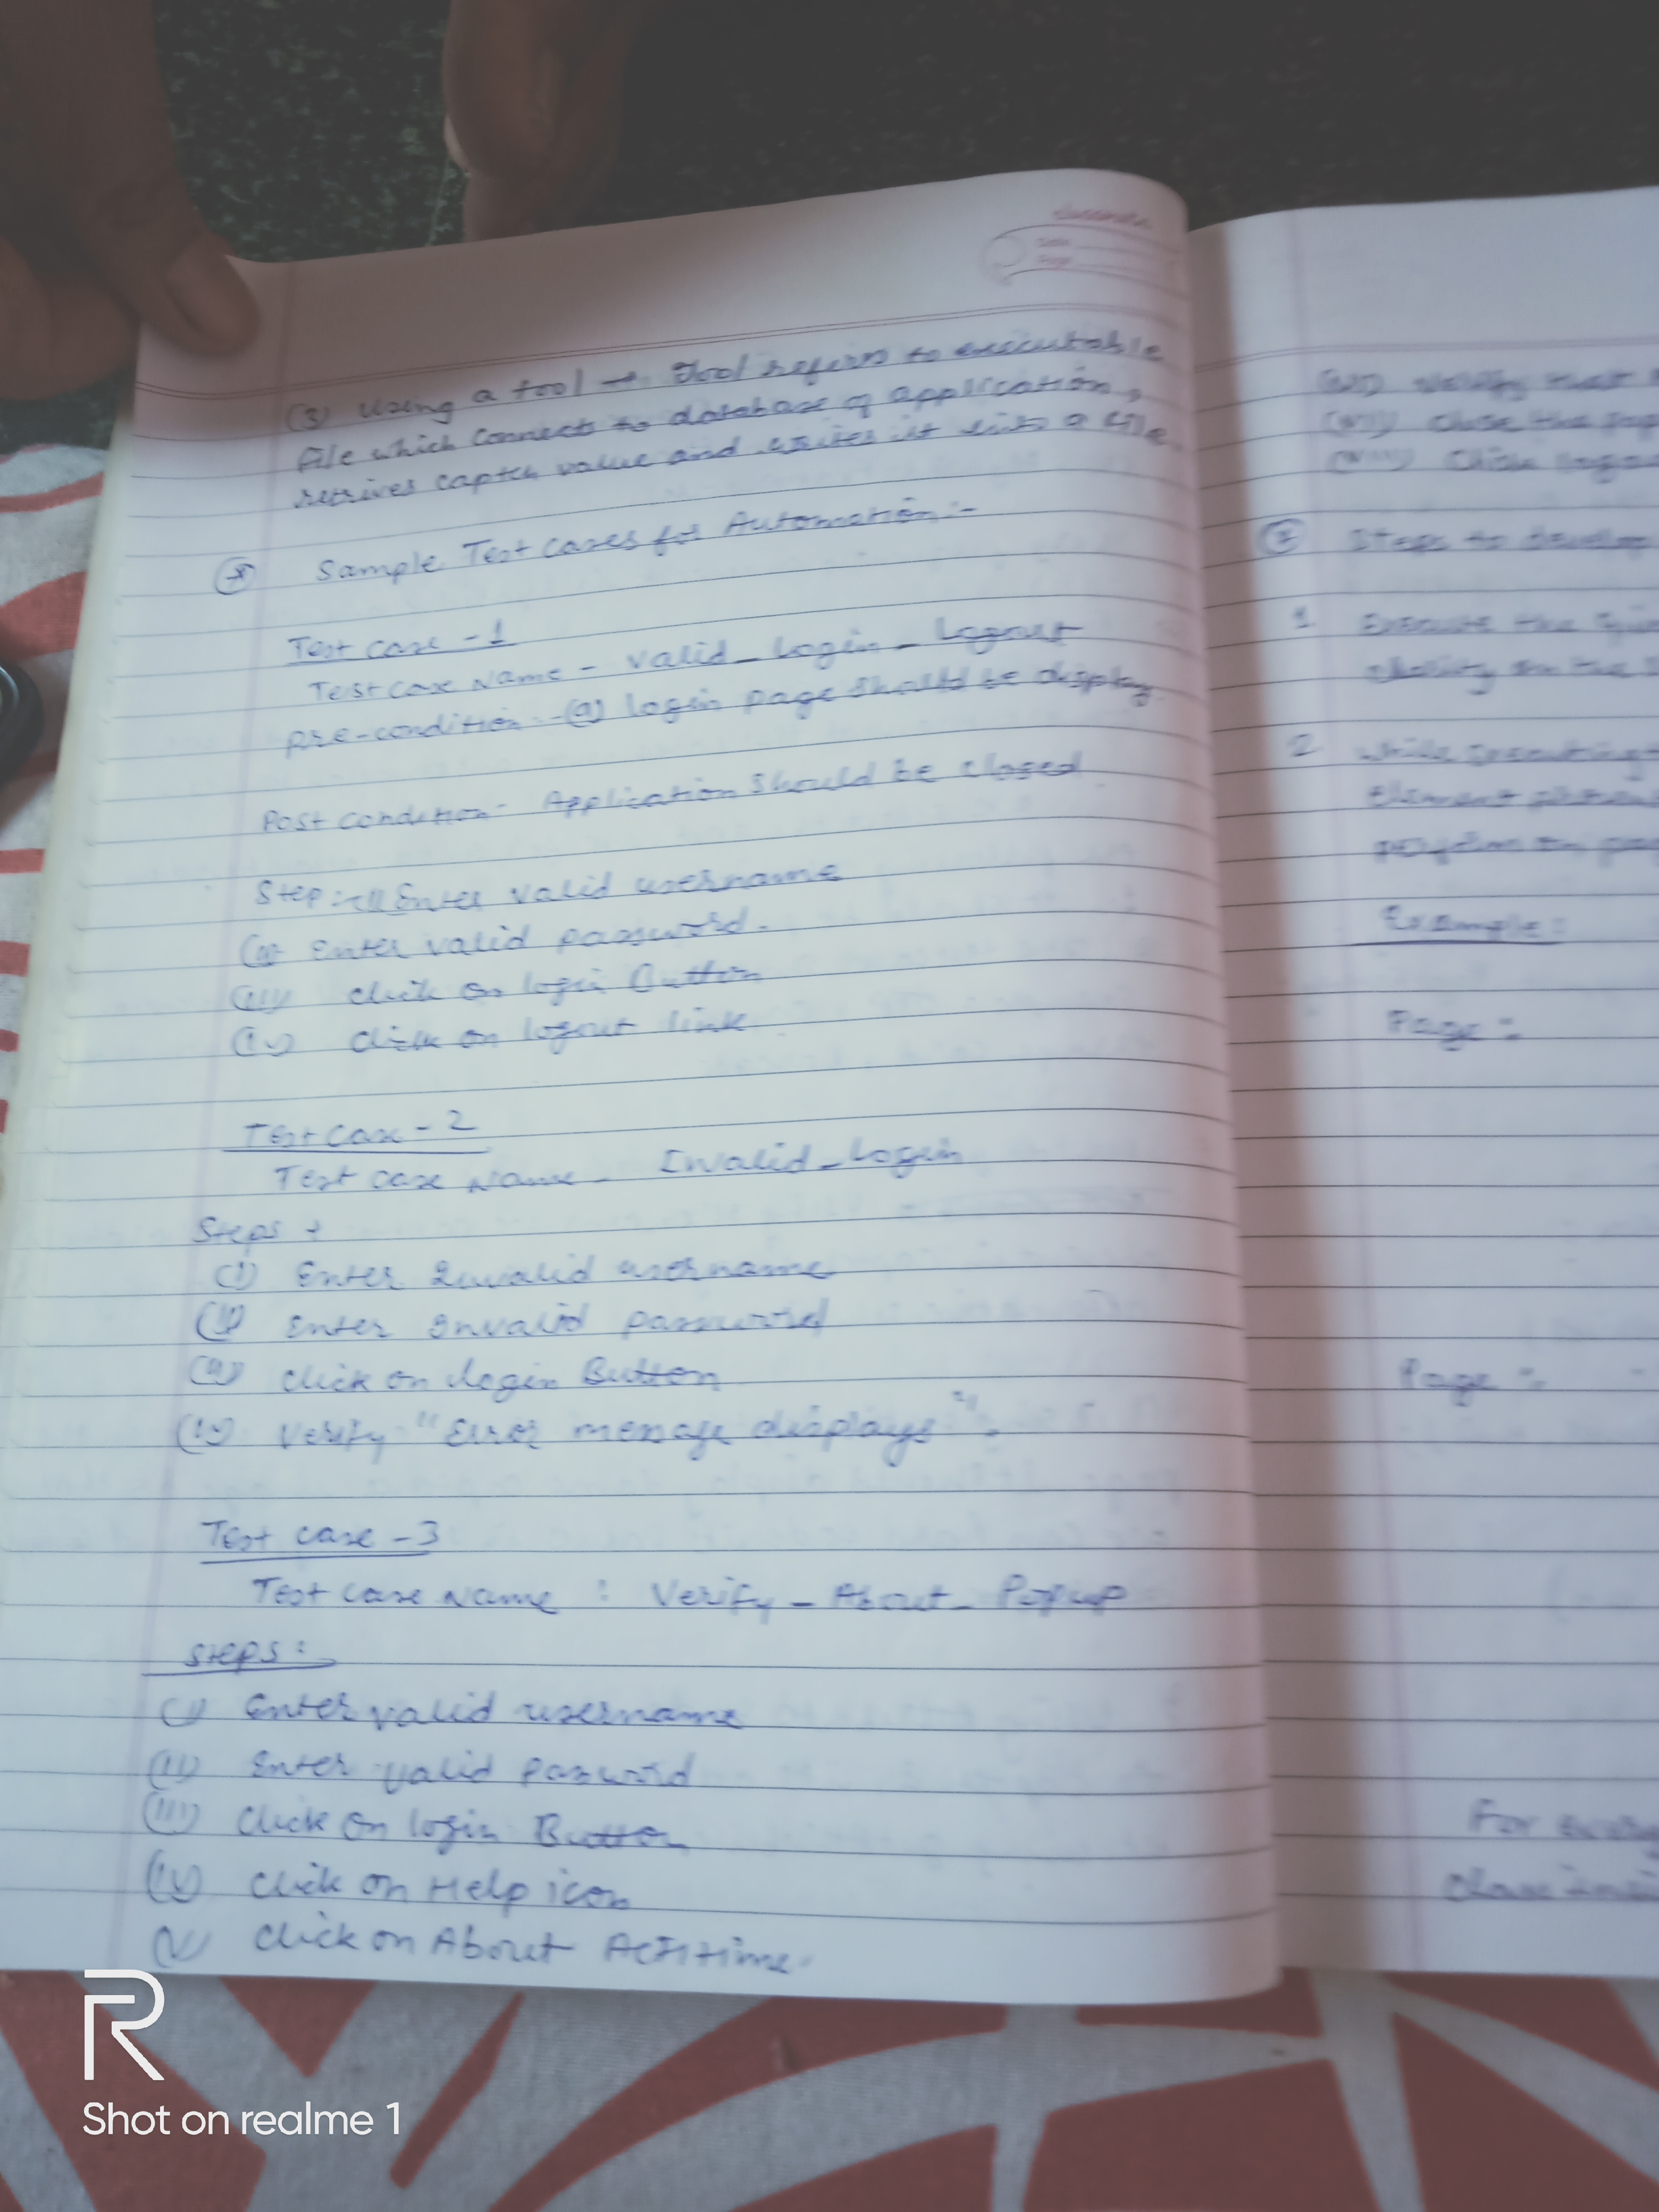 classmate
Date
Page
(3) Using a tool → Tool refers to executable
file which connects to database of application,
retrives captch value and writes it into a file.
Sample Test cases for Automation:-
Test case - 1
Test case Name - Valid_Login_Logout
pre-condition - (a) login page should be display
Post condition - Application should be closed
Step:- (i) Enter valid username
(ii) Enter valid password.
(iii) click on login Button
(iv) click on logout link
Test case - 2
Test case Name - Invalid_Login
Steps
(i) Enter Invalid username
(ii) Enter Invalid password
(iii) click on login Button
(iv) Verify "Error message displays".
Test case - 3
Test case Name : Verify_About_Popup
Steps:
(i) Enter valid username
(ii) Enter valid password
(iii) click on login Button
(iv) click on Help icon
(v) click on About Actitime
(vi) Verify that
(vii) close the
(viii) Click
Steps to develop
1 Execute the
in the
2 While executing
Element
perform on
Example:
Page :-
Page :-
For every
R
Shot on realme 1